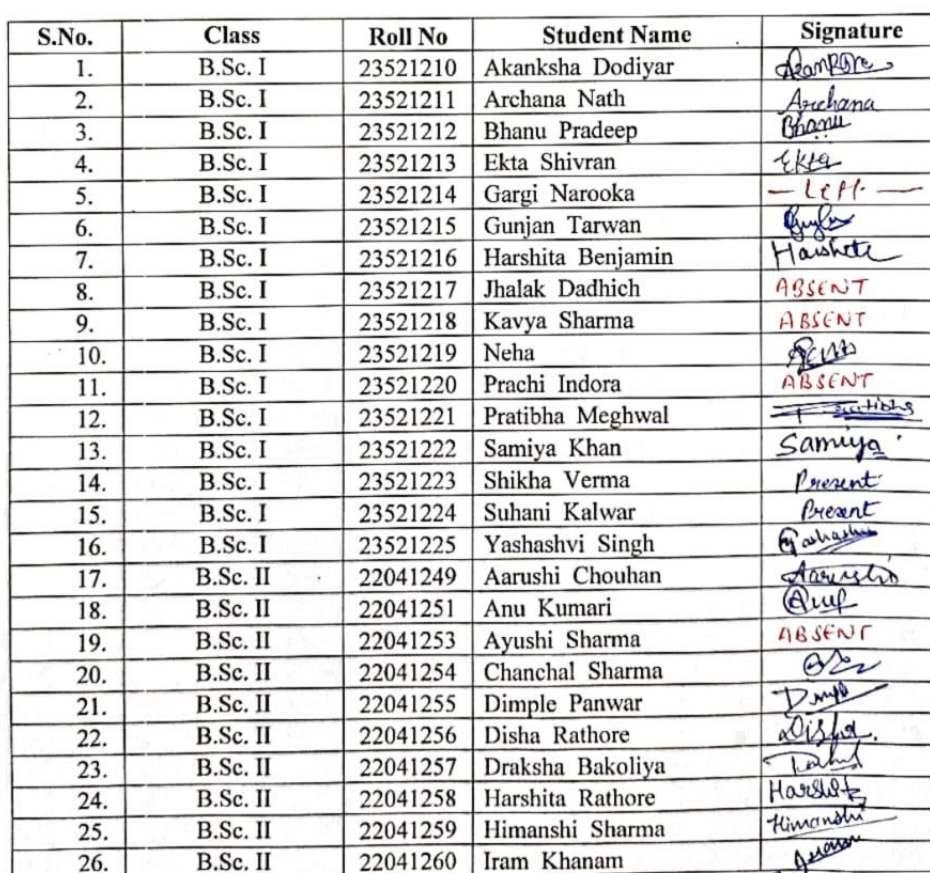 S.No. Class Roll No Student Name Signature
1. B.Sc. I 23521210 Akanksha Dodiyar
2. B.Sc. I 23521211 Archana Nath Archana
3. B.Sc. I 23521212 Bhanu Pradeep Bhanu
4. B.Sc. I 23521213 Ekta Shivran Ekta
5. B.Sc. I 23521214 Gargi Narooka — Left —
6. B.Sc. I 23521215 Gunjan Tarwan
7. B.Sc. I 23521216 Harshita Benjamin Harshita
8. B.Sc. I 23521217 Jhalak Dadhich ABSENT
9. B.Sc. I 23521218 Kavya Sharma ABSENT
10. B.Sc. I 23521219 Neha
11. B.Sc. I 23521220 Prachi Indora ABSENT
12. B.Sc. I 23521221 Pratibha Meghwal
13. B.Sc. I 23521222 Samiya Khan Samiya
14. B.Sc. I 23521223 Shikha Verma Present
15. B.Sc. I 23521224 Suhani Kalwar Present
16. B.Sc. I 23521225 Yashashvi Singh
17. B.Sc. II 22041249 Aarushi Chouhan Aarushi
18. B.Sc. II 22041251 Anu Kumari
19. B.Sc. II 22041253 Ayushi Sharma ABSENT
20. B.Sc. II 22041254 Chanchal Sharma
21. B.Sc. II 22041255 Dimple Panwar
22. B.Sc. II 22041256 Disha Rathore Disha
23. B.Sc. II 22041257 Draksha Bakoliya
24. B.Sc. II 22041258 Harshita Rathore
25. B.Sc. II 22041259 Himanshi Sharma Himanshi
26. B.Sc. II 22041260 Iram Khanam